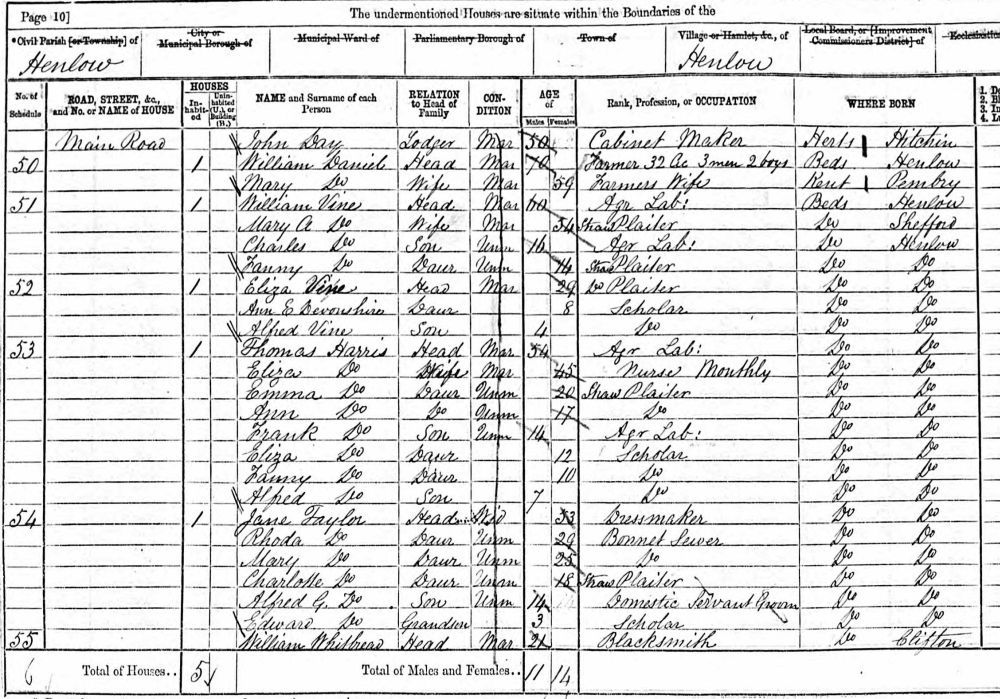 Page 10] The undermentioned Houses are situate within the Boundaries of the
*Civil Parish [or Township] of City or Municipal Borough of Municipal Ward of Parliamentary Borough of Town of Village or Hamlet, &c., of Local Board, or [Improvement Commissioners District] of
Henlow Henlow
No. of Schedule ROAD, STREET, &c., and No. or NAME of HOUSE HOUSES Inhabited Uninhabited (U.), or Building (B.) NAME and Surname of each Person RELATION to Head of Family CONDITION AGE of Males Females Rank, Profession, or OCCUPATION WHERE BORN
Main Road John Day Lodger Mar 50 Cabinet Maker Herts Hitchin
50 1 William Daniel Head Mar 70 Farmer 32 Ac 3 men 2 boys Beds Henlow
Mary Do Wife Mar 59 Farmers Wife Kent Pembry
51 1 William Vine Head Mar 60 Agr Lab: Beds Henlow
Mary A Do Wife Mar 54 Straw Plaiter Do Shefford
Charles Do Son Unm 16 Agr Lab: Do Henlow
Fanny Do Daur Unm 14 Straw Plaiter Do Do
52 1 Eliza Vine Head Mar 29 Do Plaiter Do Do
Ann E Devonshire Daur 8 Scholar Do Do
Alfred Vine Son 4 Do Do Do
53 1 Thomas Harris Head Mar 54 Agr Lab: Do Do
Eliza Do Wife Mar 45 Nurse Monthly Do Do
Emma Do Daur Unm 20 Straw Plaiter Do Do
Ann Do Do Unm 17 Do Do Do
Frank Do Son Unm 14 Agr Lab: Do Do
Eliza Do Daur 12 Scholar Do Do
Fanny Do Daur 10 Do Do Do
Alfred Do Son 7 Do Do Do
54 1 Jane Taylor Head Wid 53 Dressmaker Do Do
Rhoda Do Daur Unm 29 Bonnet Sewer Do Do
Mary Do Daur Unm 25 Do Do Do
Charlotte Do Daur Unm 18 Straw Plaiter Do Do
Alfred G. Do Son Unm 14 Domestic Servant Groom Do Do
Edward Do Grandson 3 Scholar Do Do
55 William Whitbread Head Mar 21 Blacksmith Do Clifton
6 Total of Houses.. 5 Total of Males and Females.. 11 14